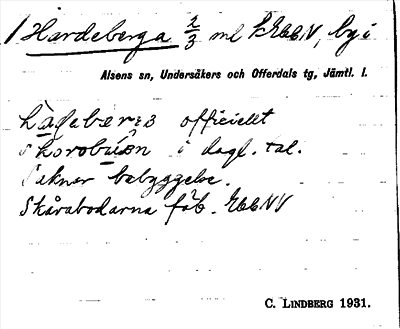 1 Hardeberga 2/3 ml EbbN, by i
Alsens sn, Undersåkers och Offerdals tg, Jämtl. l.
officiellt
i dagl. tal.
Saknar bebyggelse.
Skårabodarna fäb. EbbNV
C. LINDBERG 1931.